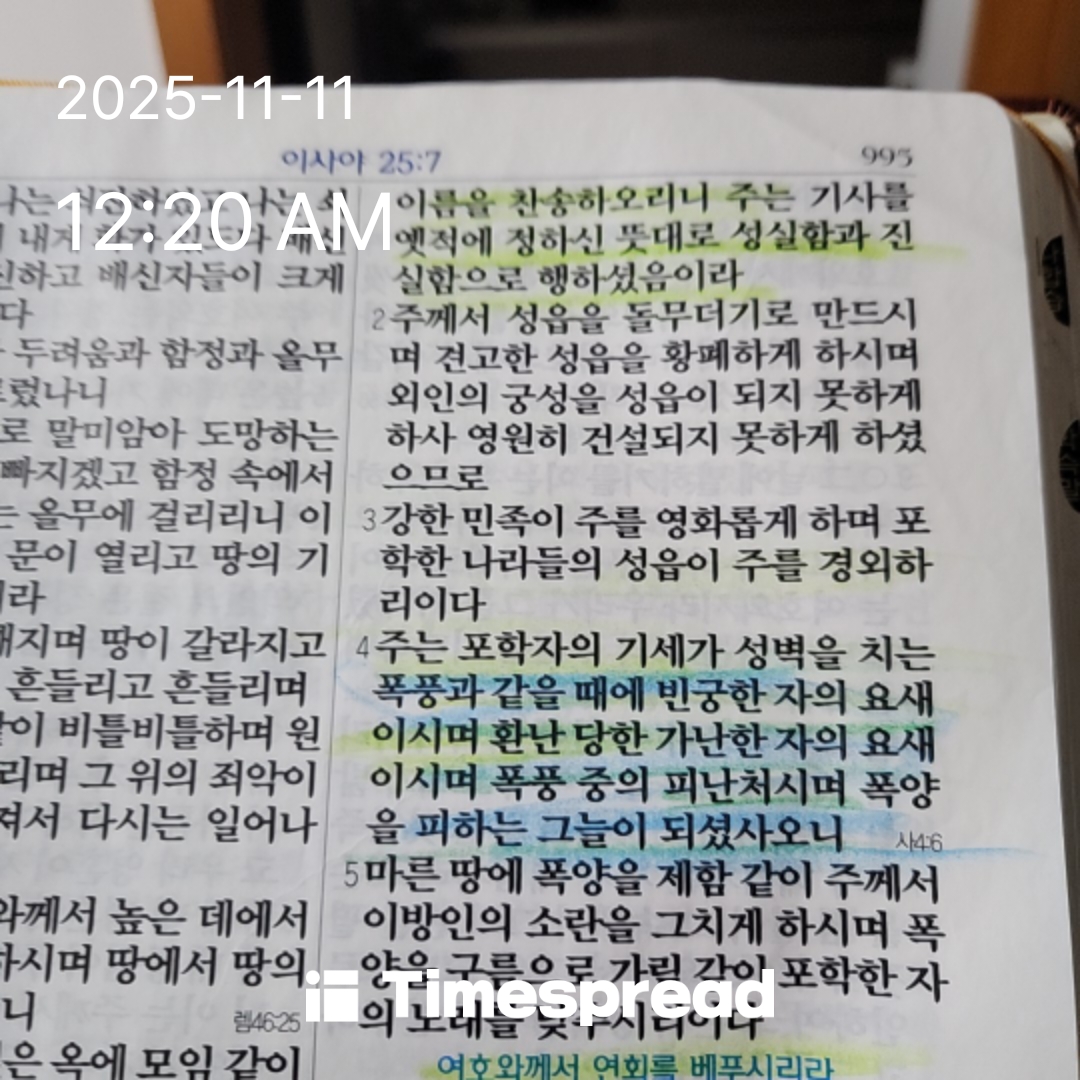 2025-11-11
12:20 AM
이사야 25:7
995
나는
내게
신하고 배신자들이 크게
다
두려움과 함정과 올무
렀나니
로 말미암아 도망하는
빠지겠고 함정 속에서
는 올무에 걸리리니 이
문이 열리고 땅의 기
라
깨지며 땅이 갈라지고
흔들리고 흔들리며
같이 비틀비틀하며 원
리며 그 위의 죄악이
져서 다시는 일어나
와께서 높은 데에서
하시며 땅에서 땅의
니
렘46:25
은 옥에 모임 같이
이름을 찬송하오리니 주는 기사를
옛적에 정하신 뜻대로 성실함과 진
실함으로 행하셨음이라
2 주께서 성읍을 돌무더기로 만드시
며 견고한 성읍을 황폐하게 하시며
외인의 궁성을 성읍이 되지 못하게
하사 영원히 건설되지 못하게 하셨
으므로
3 강한 민족이 주를 영화롭게 하며 포
학한 나라들의 성읍이 주를 경외하
리이다
4 주는 포학자의 기세가 성벽을 치는
폭풍과 같을 때에 빈궁한 자의 요새
이시며 환난 당한 가난한 자의 요새
이시며 폭풍 중의 피난처시며 폭양
을 피하는 그늘이 되셨사오니
사4:6
5 마른 땅에 폭양을 제함 같이 주께서
이방인의 소란을 그치게 하시며 폭
양을 구름으로 가림 같이 포학한 자
의 노래를 낮추시리이다
여호와께서 연회를 베푸시리라
Timespread